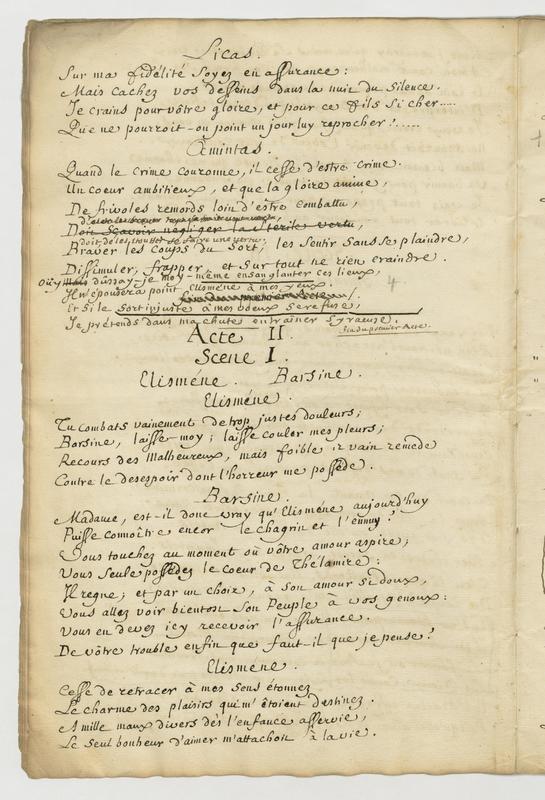 Licas.
Sur ma fidélité soyez en assurance :
Mais cachez vos desseins dans la nuit du silence.
Je crains pour vôtre gloire, et pour ce fils si cher.....
Que ne pourroit-on point un jour luy reprocher !.....
Amintas.
Quand le crime couronne, il cesse d'estre crime.
Un coeur ambitieux, et que la gloire anime,
De frivoles remords loin d'estre combattu,
Doit sçavoir negliger la sterile vertu,
doit de les étouffer se faire une vertu,
Braver les coups du sort, les sentir sans se plaindre,
Dissimuler, frapper, et sur tout ne rien craindre.
Oüy dussay-je moy-même ensanglanter ces lieux,
Il n'épousera point Elisméne à mes yeux.
4
Et si le sort injuste à mes voeux se refuse,
Je prétends dans ma chute entraîner Syracuse.
fin du premier Acte.
Acte II.
Scene I.
Elisméne. Barsine.
Elisméne.
Tu combats vainement de trop justes douleurs ;
Barsine, laisse-moy ; laisse couler mes pleurs ;
Recours des Malheureux, mais foible et vain remede
Contre le desespoir dont l'horreur me possède.
Barsine.
Madame, est-il donc vray qu'Elisméne aujourd'huy
Puisse connoître encor le chagrin et l'ennuy ?
Vous touchez au moment où vôtre amour aspire ;
Vous seule possédez le coeur de Thélamire :
Il regne ; et par un choix, à son amour si doux,
Vous allez voir bientost son Peuple à vos genoux :
Vous en devez icy recevoir l'assurance.
De vôtre trouble enfin que faut-il que je pense ?
Elisméne.
Cesse de retracer à mes sens étonnez
Le charme des plaisirs qui m'étoient destinez.
A mille maux divers dès l'enfance asservie,
Le seul bonheur d'aimer m'attachoit à la vie.